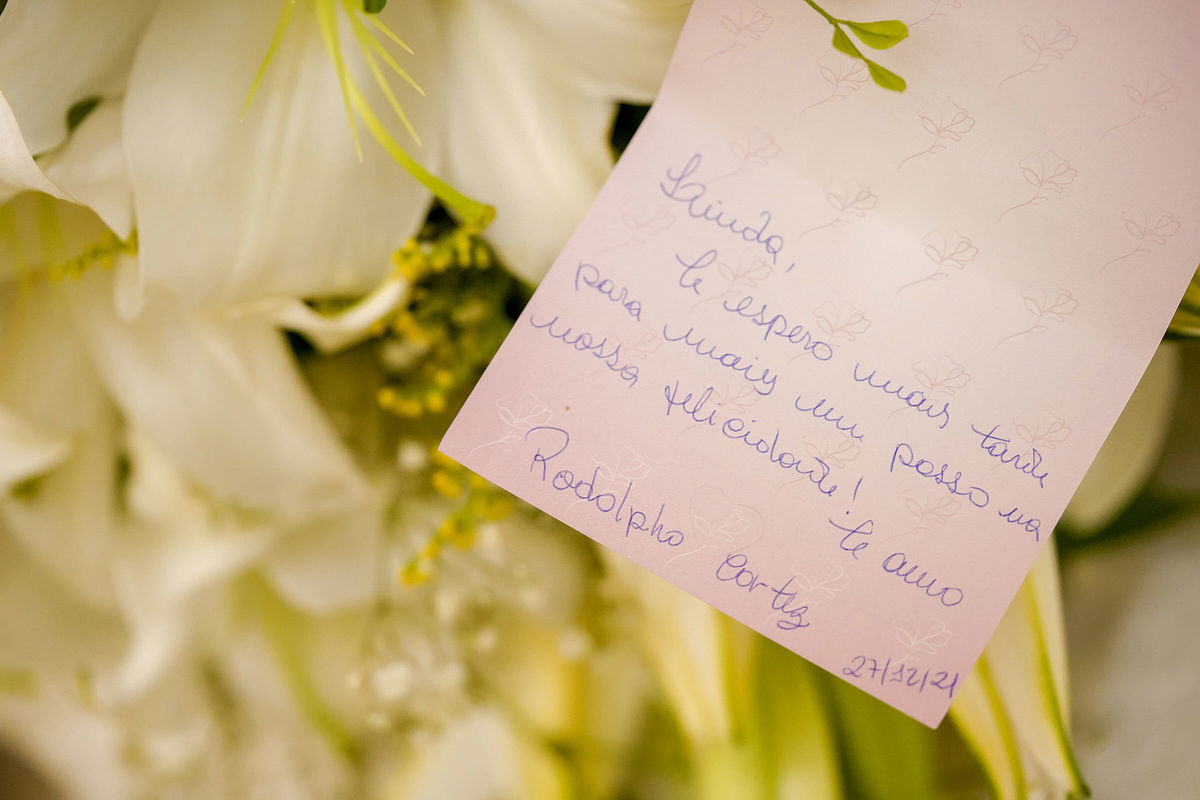 Linda,
te espero mais tarde
para mais um passo na
nossa felicidade! Te amo
Rodolpho Cortez
27/12/21